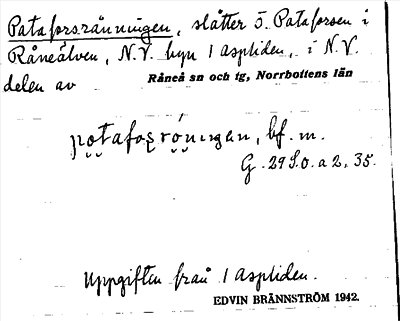 Pataforsränningen, slåtter ö. Pataforsen i
Råneälven, N.V. byn 1 Aspliden, i N.V.
delen av Råneå sn och tg, Norrbottens län
potafosróningen, bf. m.
G. 29 S.o. a 2, 35.
Uppgiften från 1 Aspliden.
EDVIN BRÄNNSTRÖM 1942.